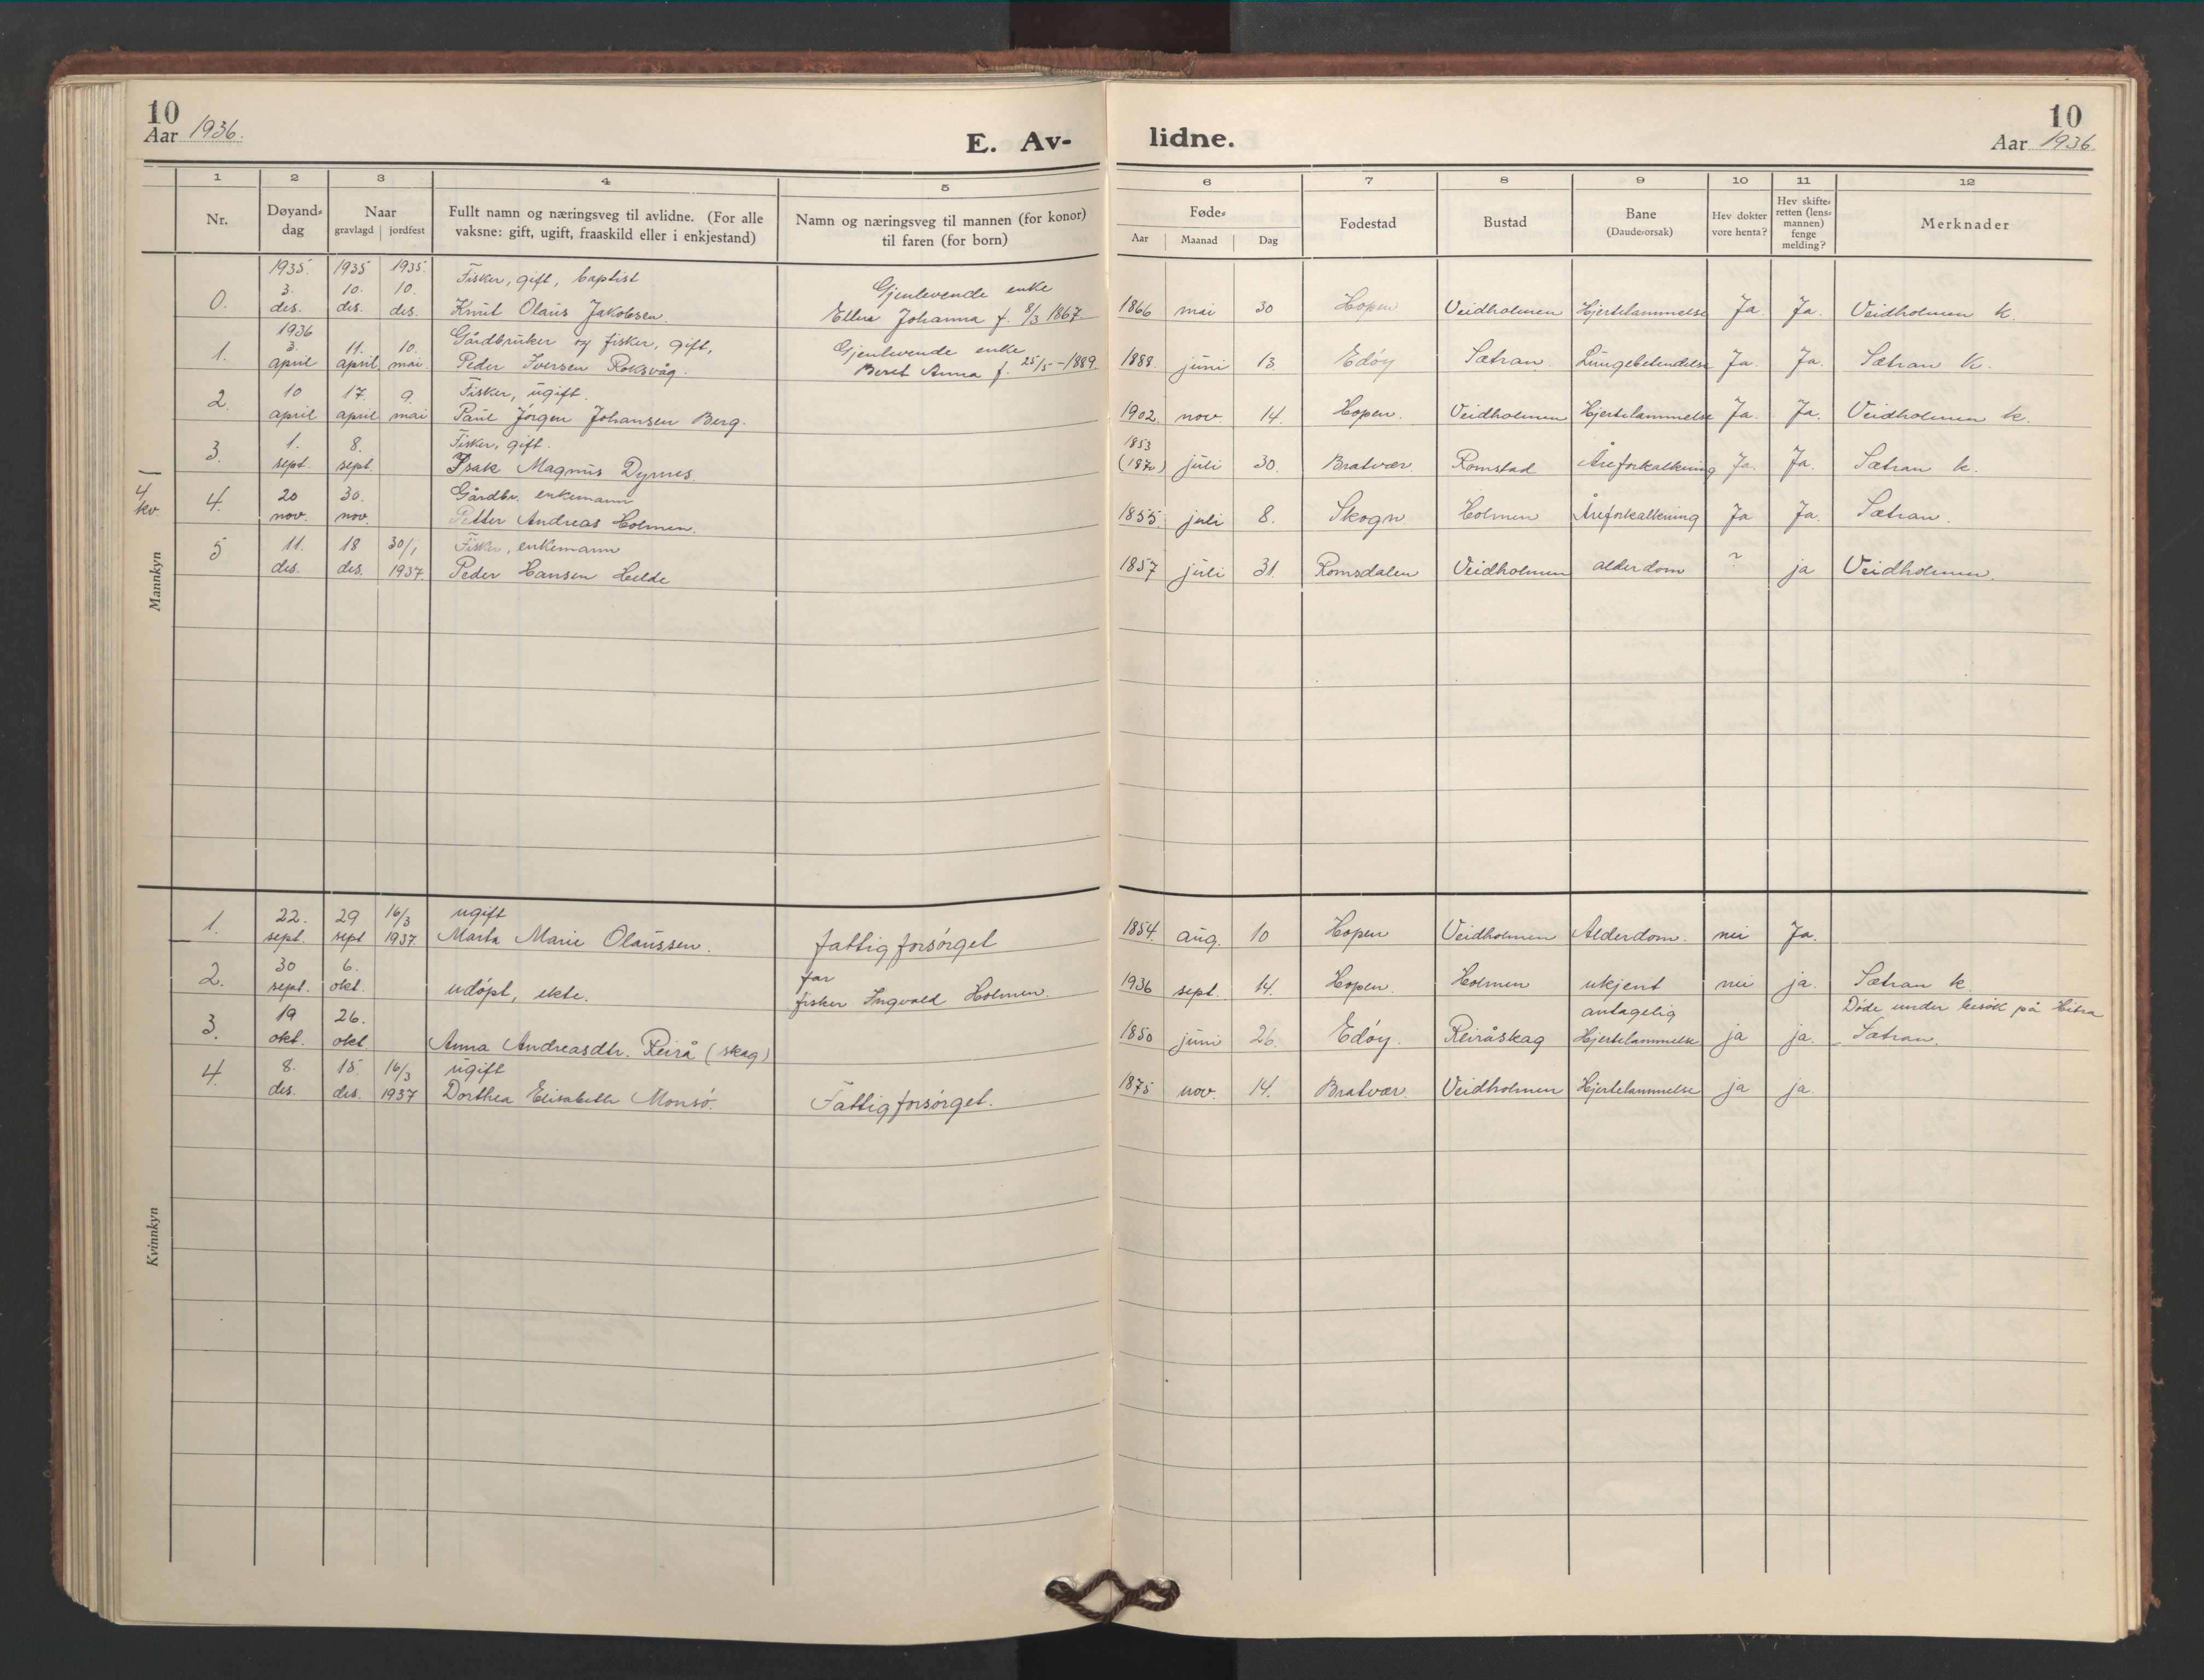 10
Aar 1936.
E. Av-
lidne.
10
Aar 1936.
1 2 3 4 5 6 7 8 9 10 11 12
Nr.
Døyand-
dag
Naar
gravlagd jordfest
Fullt namn og næringsveg til avlidne. (For alle
vaksne: gift, ugift, fraaskild eller i enkjestand)
Namn og næringsveg til mannen (for konor)
til faren (for born)
Føde-
Aar Maanad Dag
Fødestad
Bustad
Bane
(Daude-orsak)
Hev dokter
vore henta?
Hev skifte-
retten (lens-
mannen)
fenge
melding?
Merknader
Mannkyn
4
kv.
1935. 1935 1935. Fisker, gift, baptist Gjenlevende enke
0. 3. des. 10. des. 10. des. Knut Olaus Jakobsen. Ellen Johanna f. 8/3 1867. 1866 mai 30 Hopen Veidholmen Hjertelammelse Ja. Ja. Veidholmen k.
1936 Gårdbruker og fisker, gift, Gjenlevende enke
1. 3. april 11. april 10. mai. Peder Iversen Roksvåg. Beret Anna f. 25/5-1889. 1888. juni 13. Edøy Sætran. Lungebetendelse Ja. Ja. Sætran k.
Fisker, ugift.
2. 10 april 17. april 9. mai Paul Jørgen Johansen Berg. 1902. nov. 14. Hopen. Veidholmen Hjertelammelse Ja. Ja. Veidholmen k.
Fisker, gift. 1853
3. 1. sept. 8. sept. Isak Magnus Dyrnes. juli 30. Bratvær. Romstad Åreforkalkning Ja. Ja. Sætran k.
Gårdbr. enkemann
4. 20 nov. 30. nov. Petter Andreas Holmen. 1855. juli 8. Skogn Holmen Åreforkalkning Ja Ja. Sætran.
Fisker, enkemann
5 11. des. 18 des. 30/1 1937. Peder Hansen Helde 1857 juli 31. Romsdalen Veidholmen alderdom ? ja Veidholmen.
Kvinnkyn
ugift
1. 22. sept. 29 sept 16/3 1937. Marta Marie Olaussen. fattigforsørget 1854. aug. 10 Hopen Veidholmen Alderdom. nei Ja.
far
2. 30 sept. 6. okt. udøpt, ekte. fisker Ingvald Holmen. 1936 sept. 14. Hopen. Holmen ukjent nei ja. Sætran k.
antagelig Døde under besøk på Hitra
3. 19 okt. 26. okt. Anna Andreasdtr. Reirå (skag) 1850 juni 26. Edøy. Reiråskag Hjertelammelse ja ja. Sætran.
ugift
4. 8. des. 15. des. 16/3 1937 Dorthea Elisabeth Monsø. Fattigforsørget. 1875 nov. 14. Bratvær. Veidholmen Hjertelammelse ja ja.